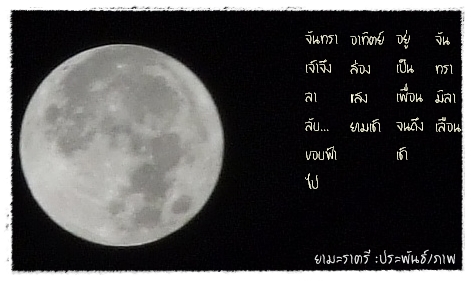 จันทรา อาทิตย์ อยู่ จัน
เจ้าจึง ส่อง เป็น ทรา
ลา แสง เพื่อน มิลา
ลับ... ยามเช้า จนถึง เลือน
ขอบฟ้า เช้า
ไป
ยามะราตรี :ประพันธ์/ภาพ